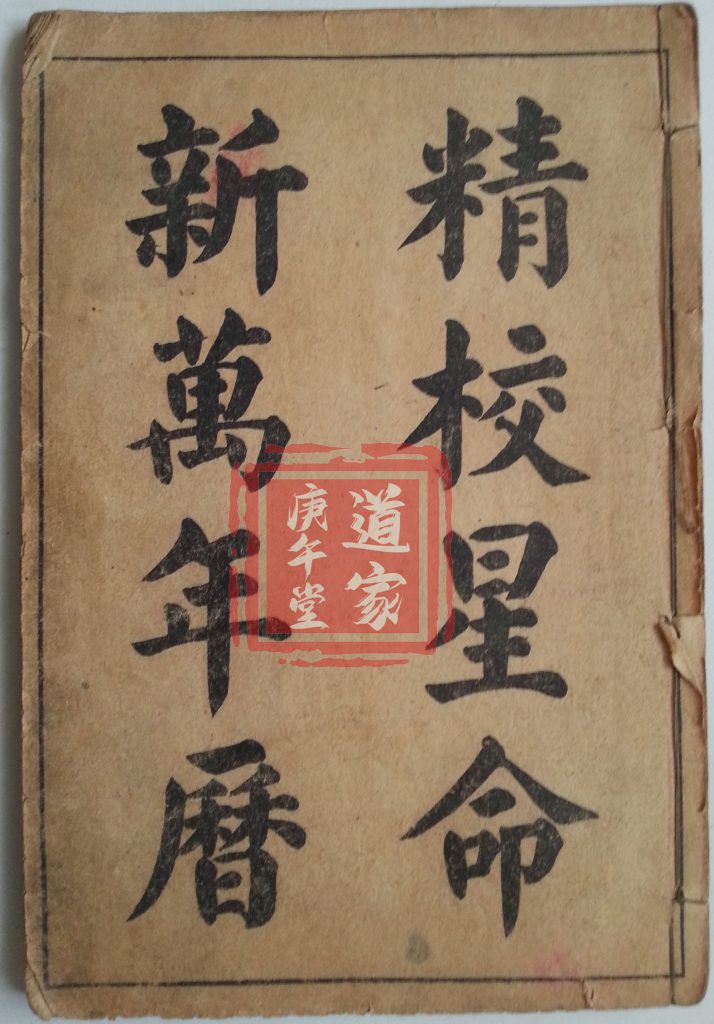 精校星命
新萬年曆
道家
庚午堂